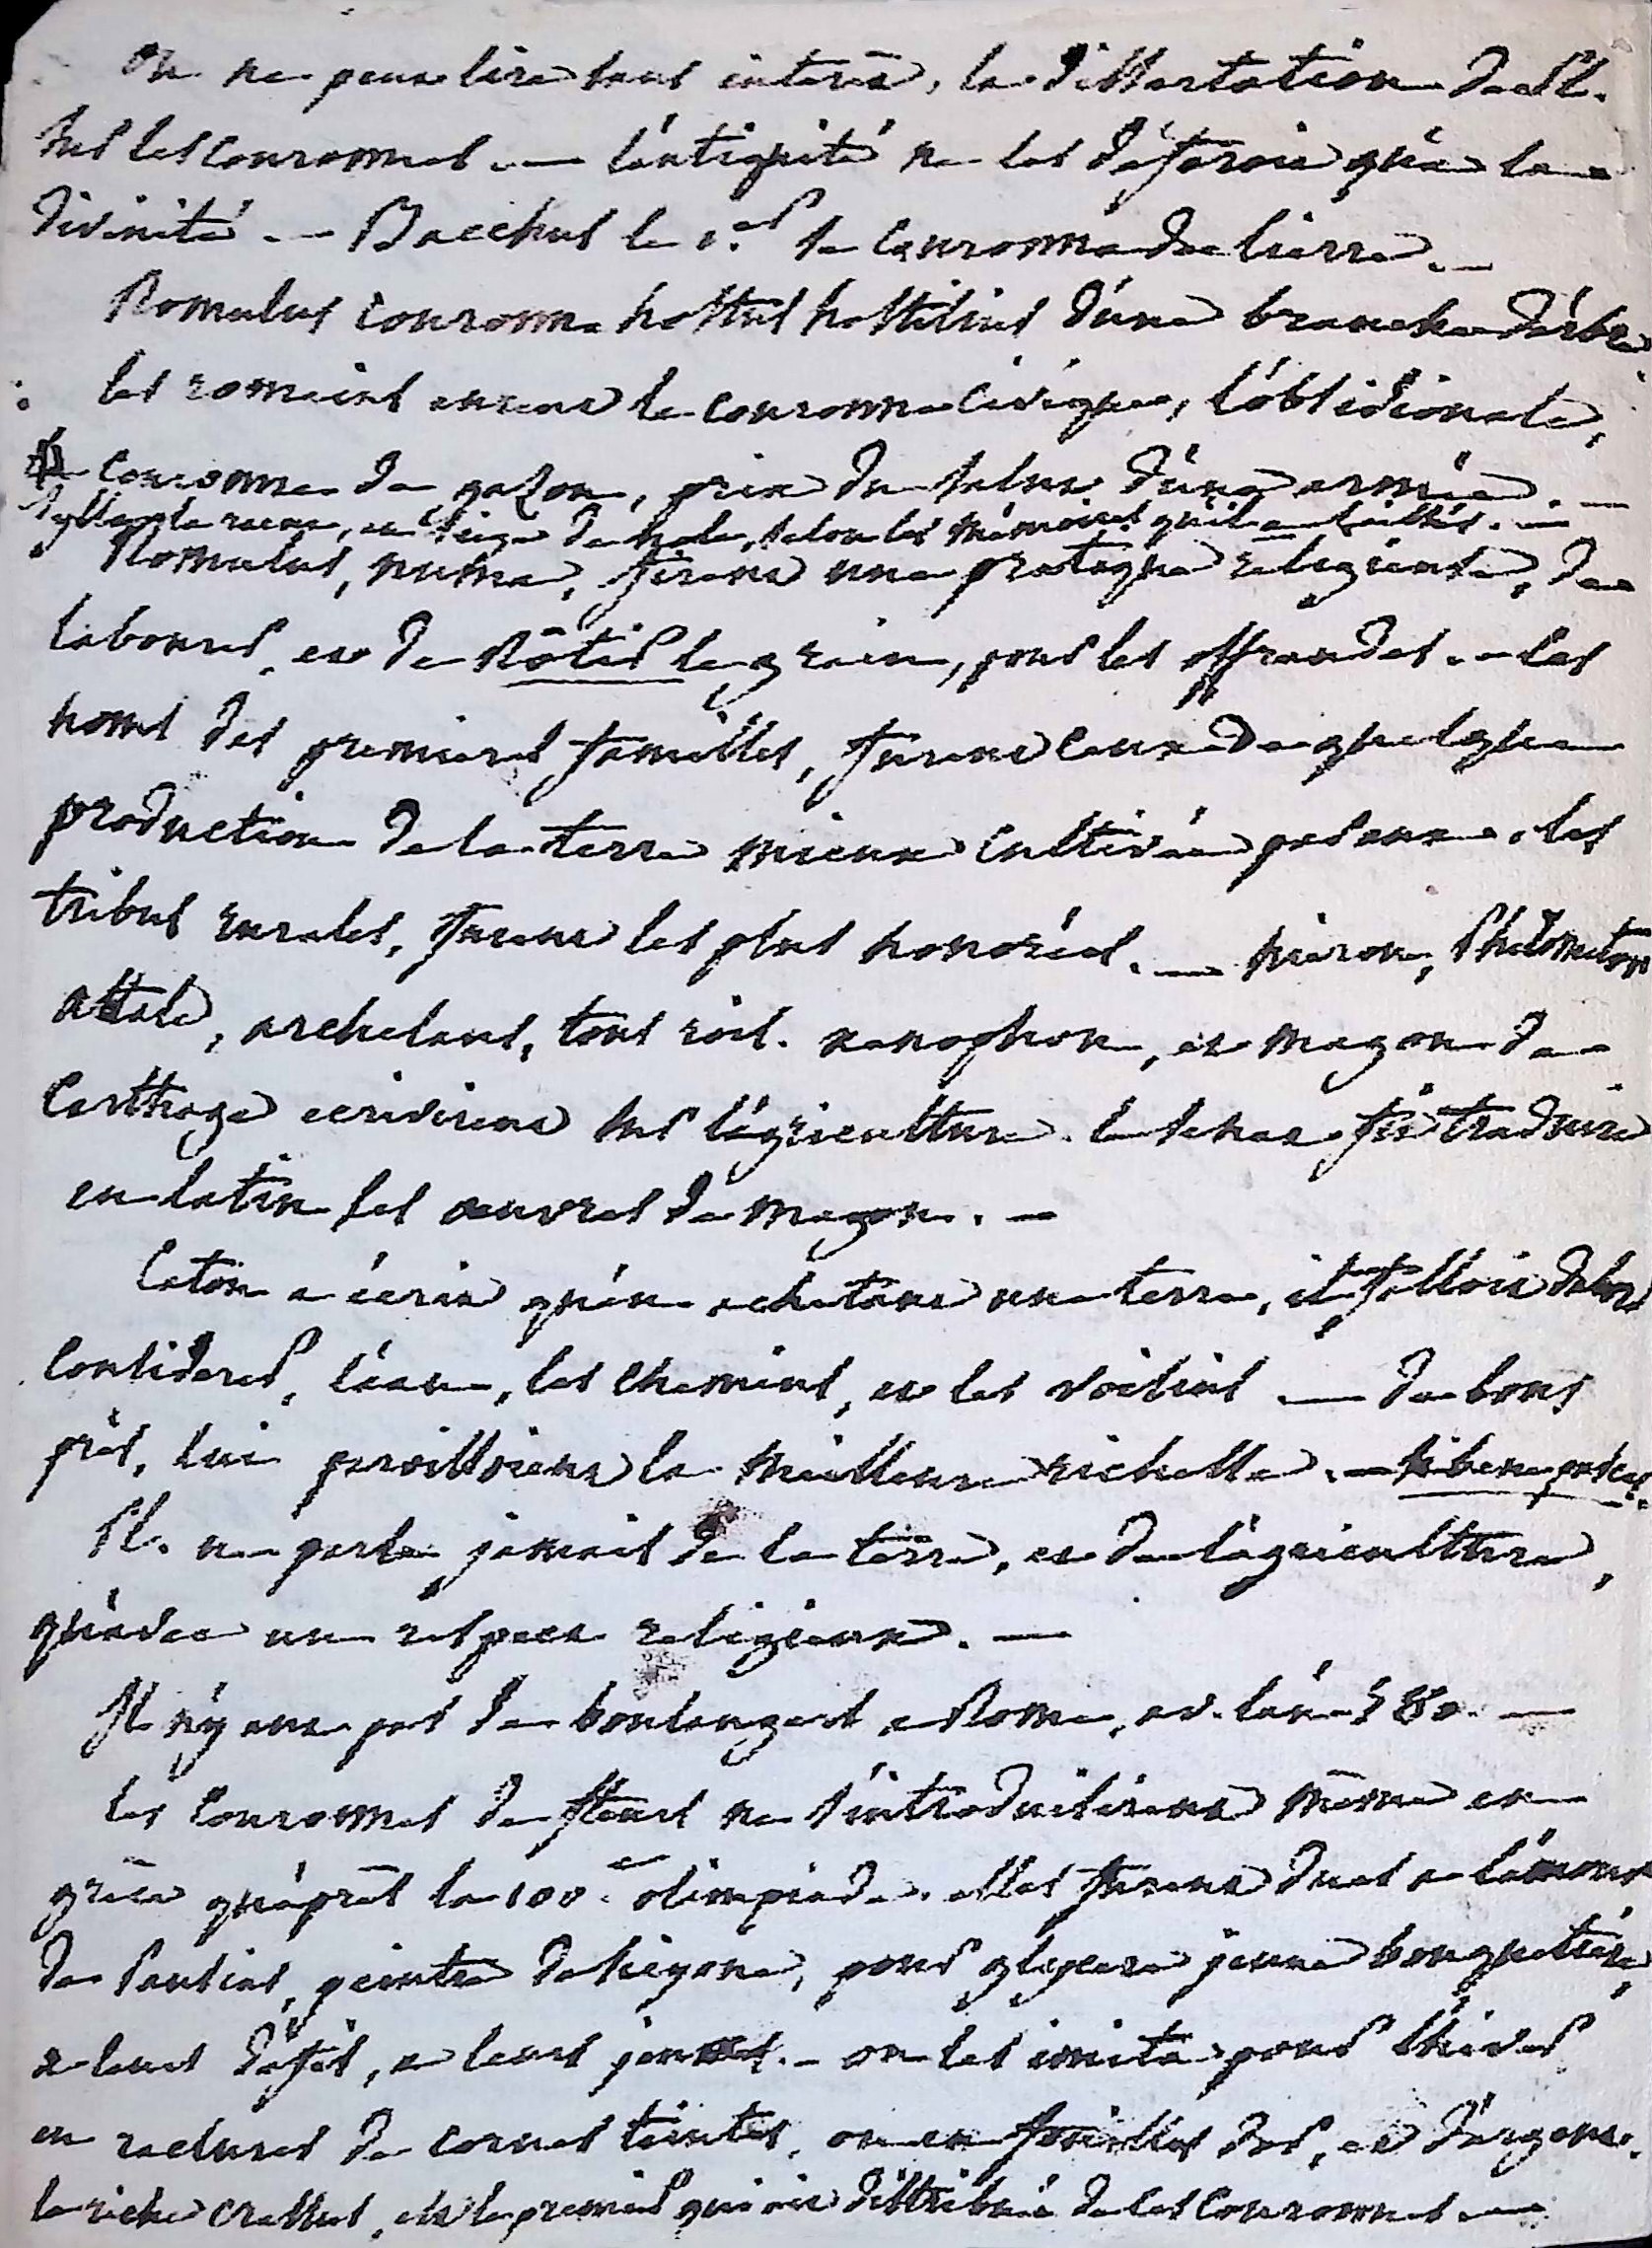 On ne peut lire sans intérêt, la dissertation de Pl.
sur les couronnes. — l'antiquité ne les déferoit qu'a la
divinité. — Bacchus le 1.er se couronna de lierre. —
Romulus couronna hostus hostilius d'une branche d'arbre.
les romains eurent la couronne civique, l'obsidionale,
couronne de gazon, prix du salut d'une armée. —
Sylla la reçut, au siège de nole, selon les mémoires qu'il a laissés. —
Romulus, numa, firent une pratique religieuse, de
labourer, et de Rôtir le grain, pour les offrandes. — les
noms des premieres familles, furent ceux de quelque
production de la terre mieux cultivée par eux. les
tribus rurales, furent les plus honorées. — hieron, Philometor
attale, archelaus, tous rois. xenophon, et magon de
Carthage ecrivirent sur l'agriculture. le senat fit traduire
en latin les œuvres de magon. —
Caton a écrit qu'en achetant une terre, il falloit d'abord
considerer, l'eau, les chemins, et les voisins — de bons
prés, lui paroissoient la meilleure richesse. — si bene pascas.
Pl. ne parle jamais de la terre, et de l'agriculture,
qu'avec un respect religieux. —
Il n'y eut pas de boulangers a Rome, av. l'an 580. —
les couronnes de fleurs ne s'introduisirent même en
grèce qu'après la 100.e olimpiade. elles furent dues a l'amour
de Pausias, peintre de sicyone, pour glycere jeune bouquetière,
a leurs défis, a leurs jeux. — on les imita pour l'hiver
en raclures de cornes teintes, ou en feuilles d'or, et d'argent.
le riche crassus, est le premier qui ait distribué de ces couronnes. —